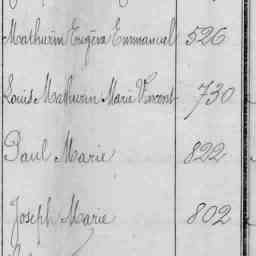 Mathurin Eugène Emmanuel 526
Louis Mathurin Marie Vincent 730
Paul Marie 822
Joseph Marie 802